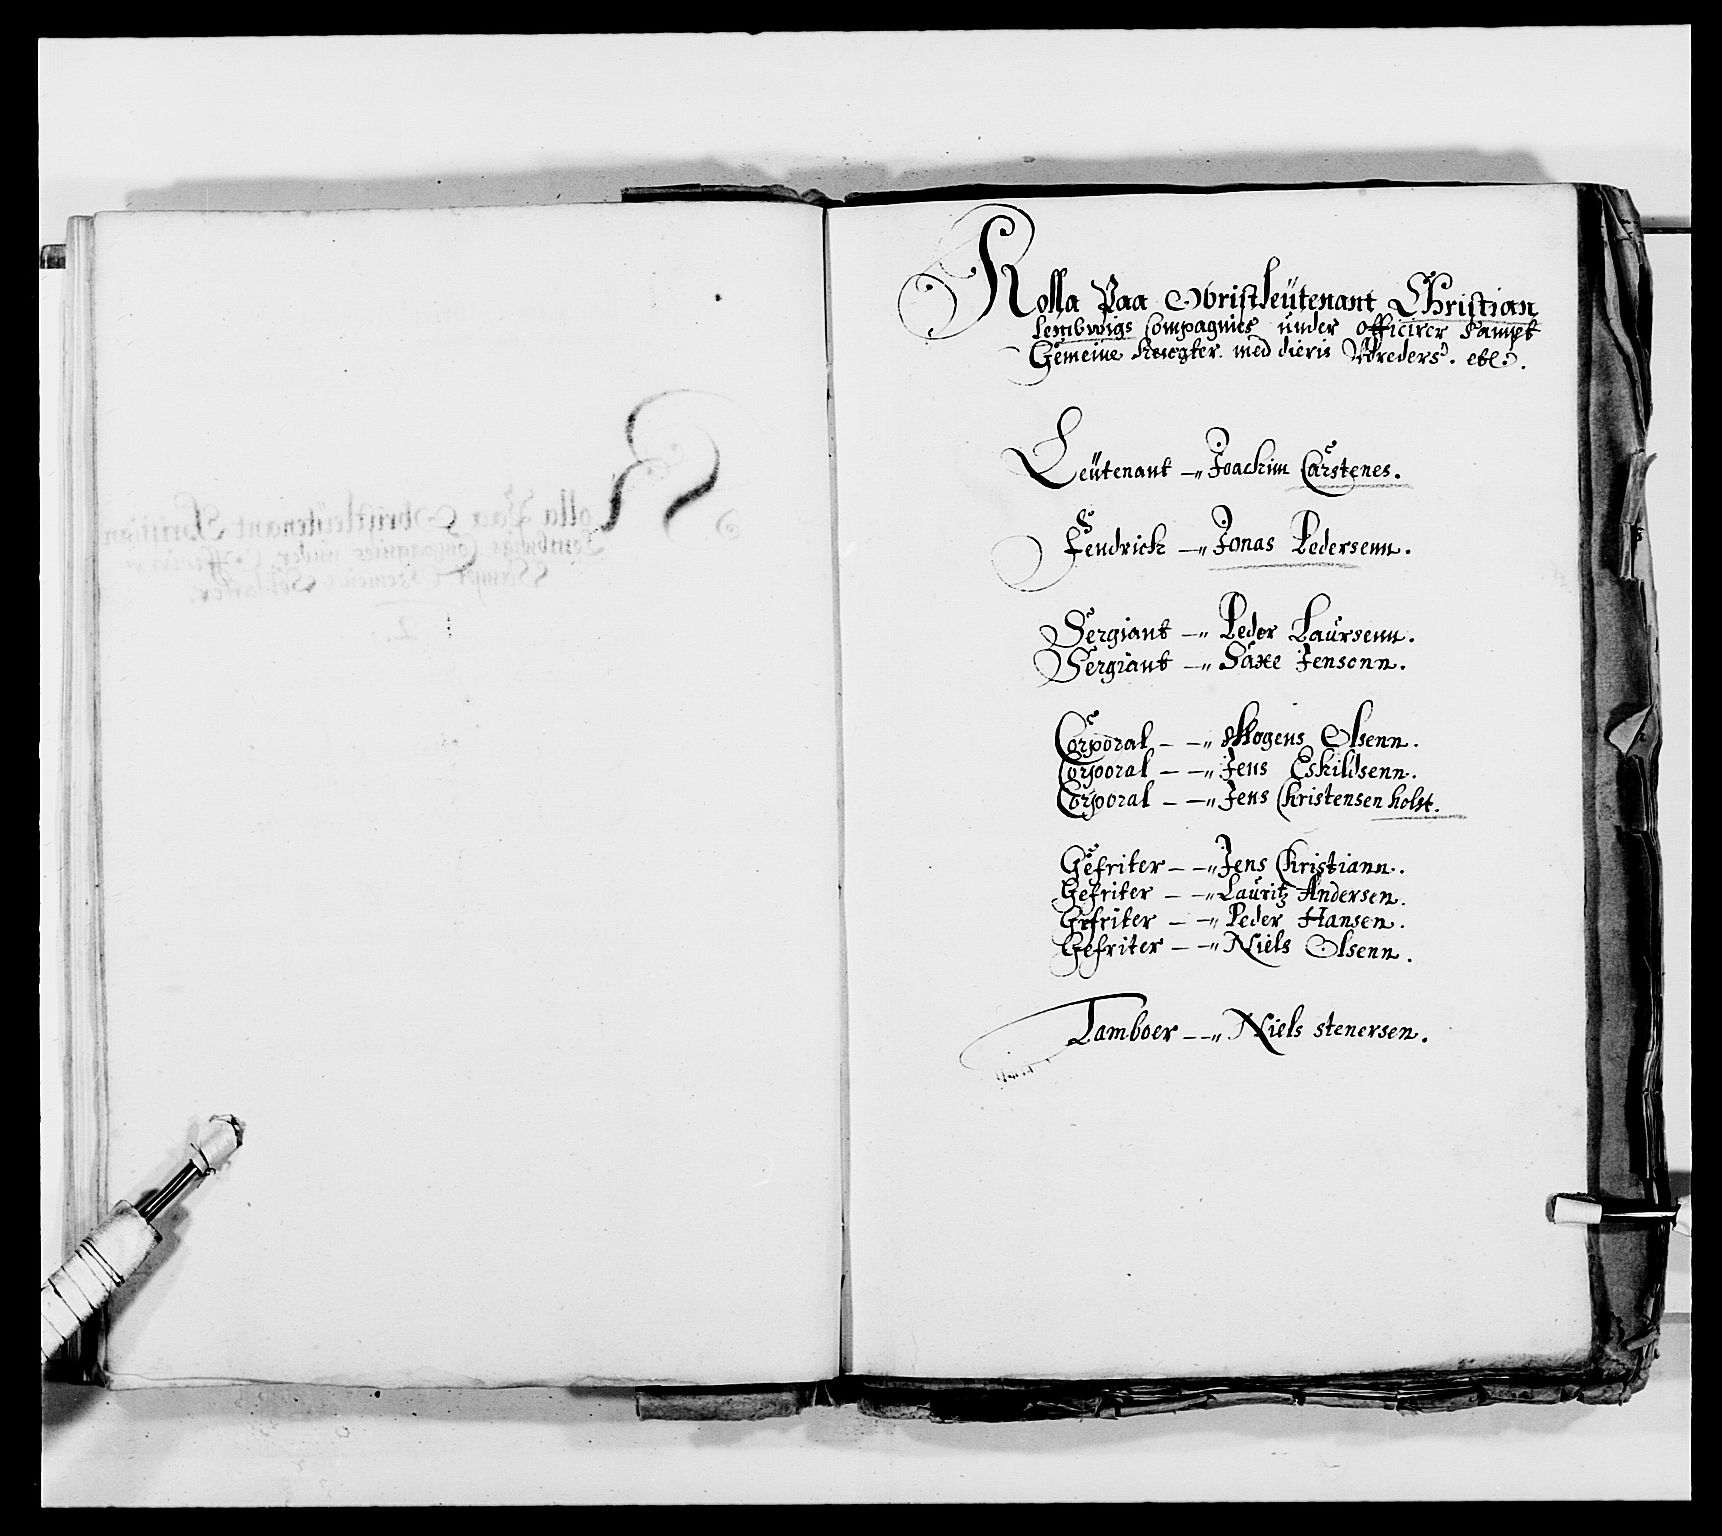 Rolla Paa Obristleütenant Christian
Lembwigs Compagnies under officirer sampt
Gemeine Knegter med dieris Wreders. etc.
Leütenant — Joachim Carstenes.
Fendrick — Jonas Pedersenn.
Sergiant — Peder Laursenn.
Sergiant — Saxe Jensonn.
Corporal — — Mogens Olsenn.
Corporal — — Jens Eskildsenn.
Corporal — — Jens Christensen holst.
Gefriter — — Jens Christiann.
Gefriter — — Lauritz Andersen.
Gefriter — — Peder Hansen.
Gefriter — — Niels Olsenn.
Tamboer — — Niels stenersen.